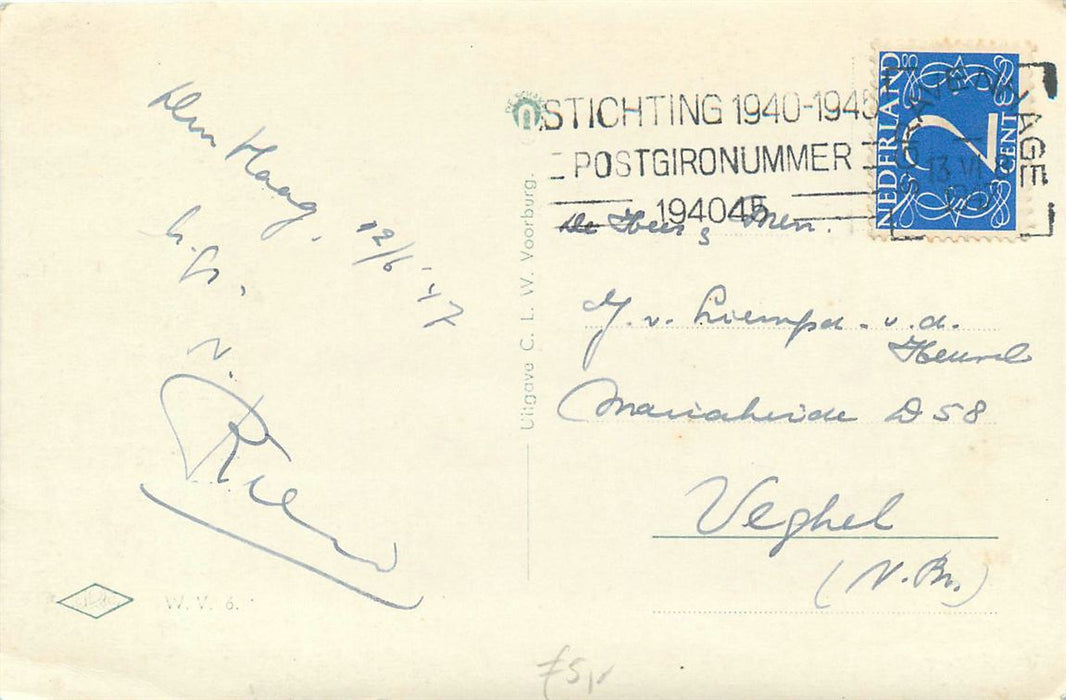 Den Haag, 12/6-'47
h. gr.
v.
Rien
W. V. 6.
Uitgave C. L. W. Voorburg.
STICHTING 1940-1945
POSTGIRONUMMER
194045
'S GRAVENHAGE
13 VI
NEDERLAND
2
CENT
De Heer & Mevr.
J. v. Liempd - v. d.
Heuvel
Mariaheide D 58
Veghel
(N. Br.)